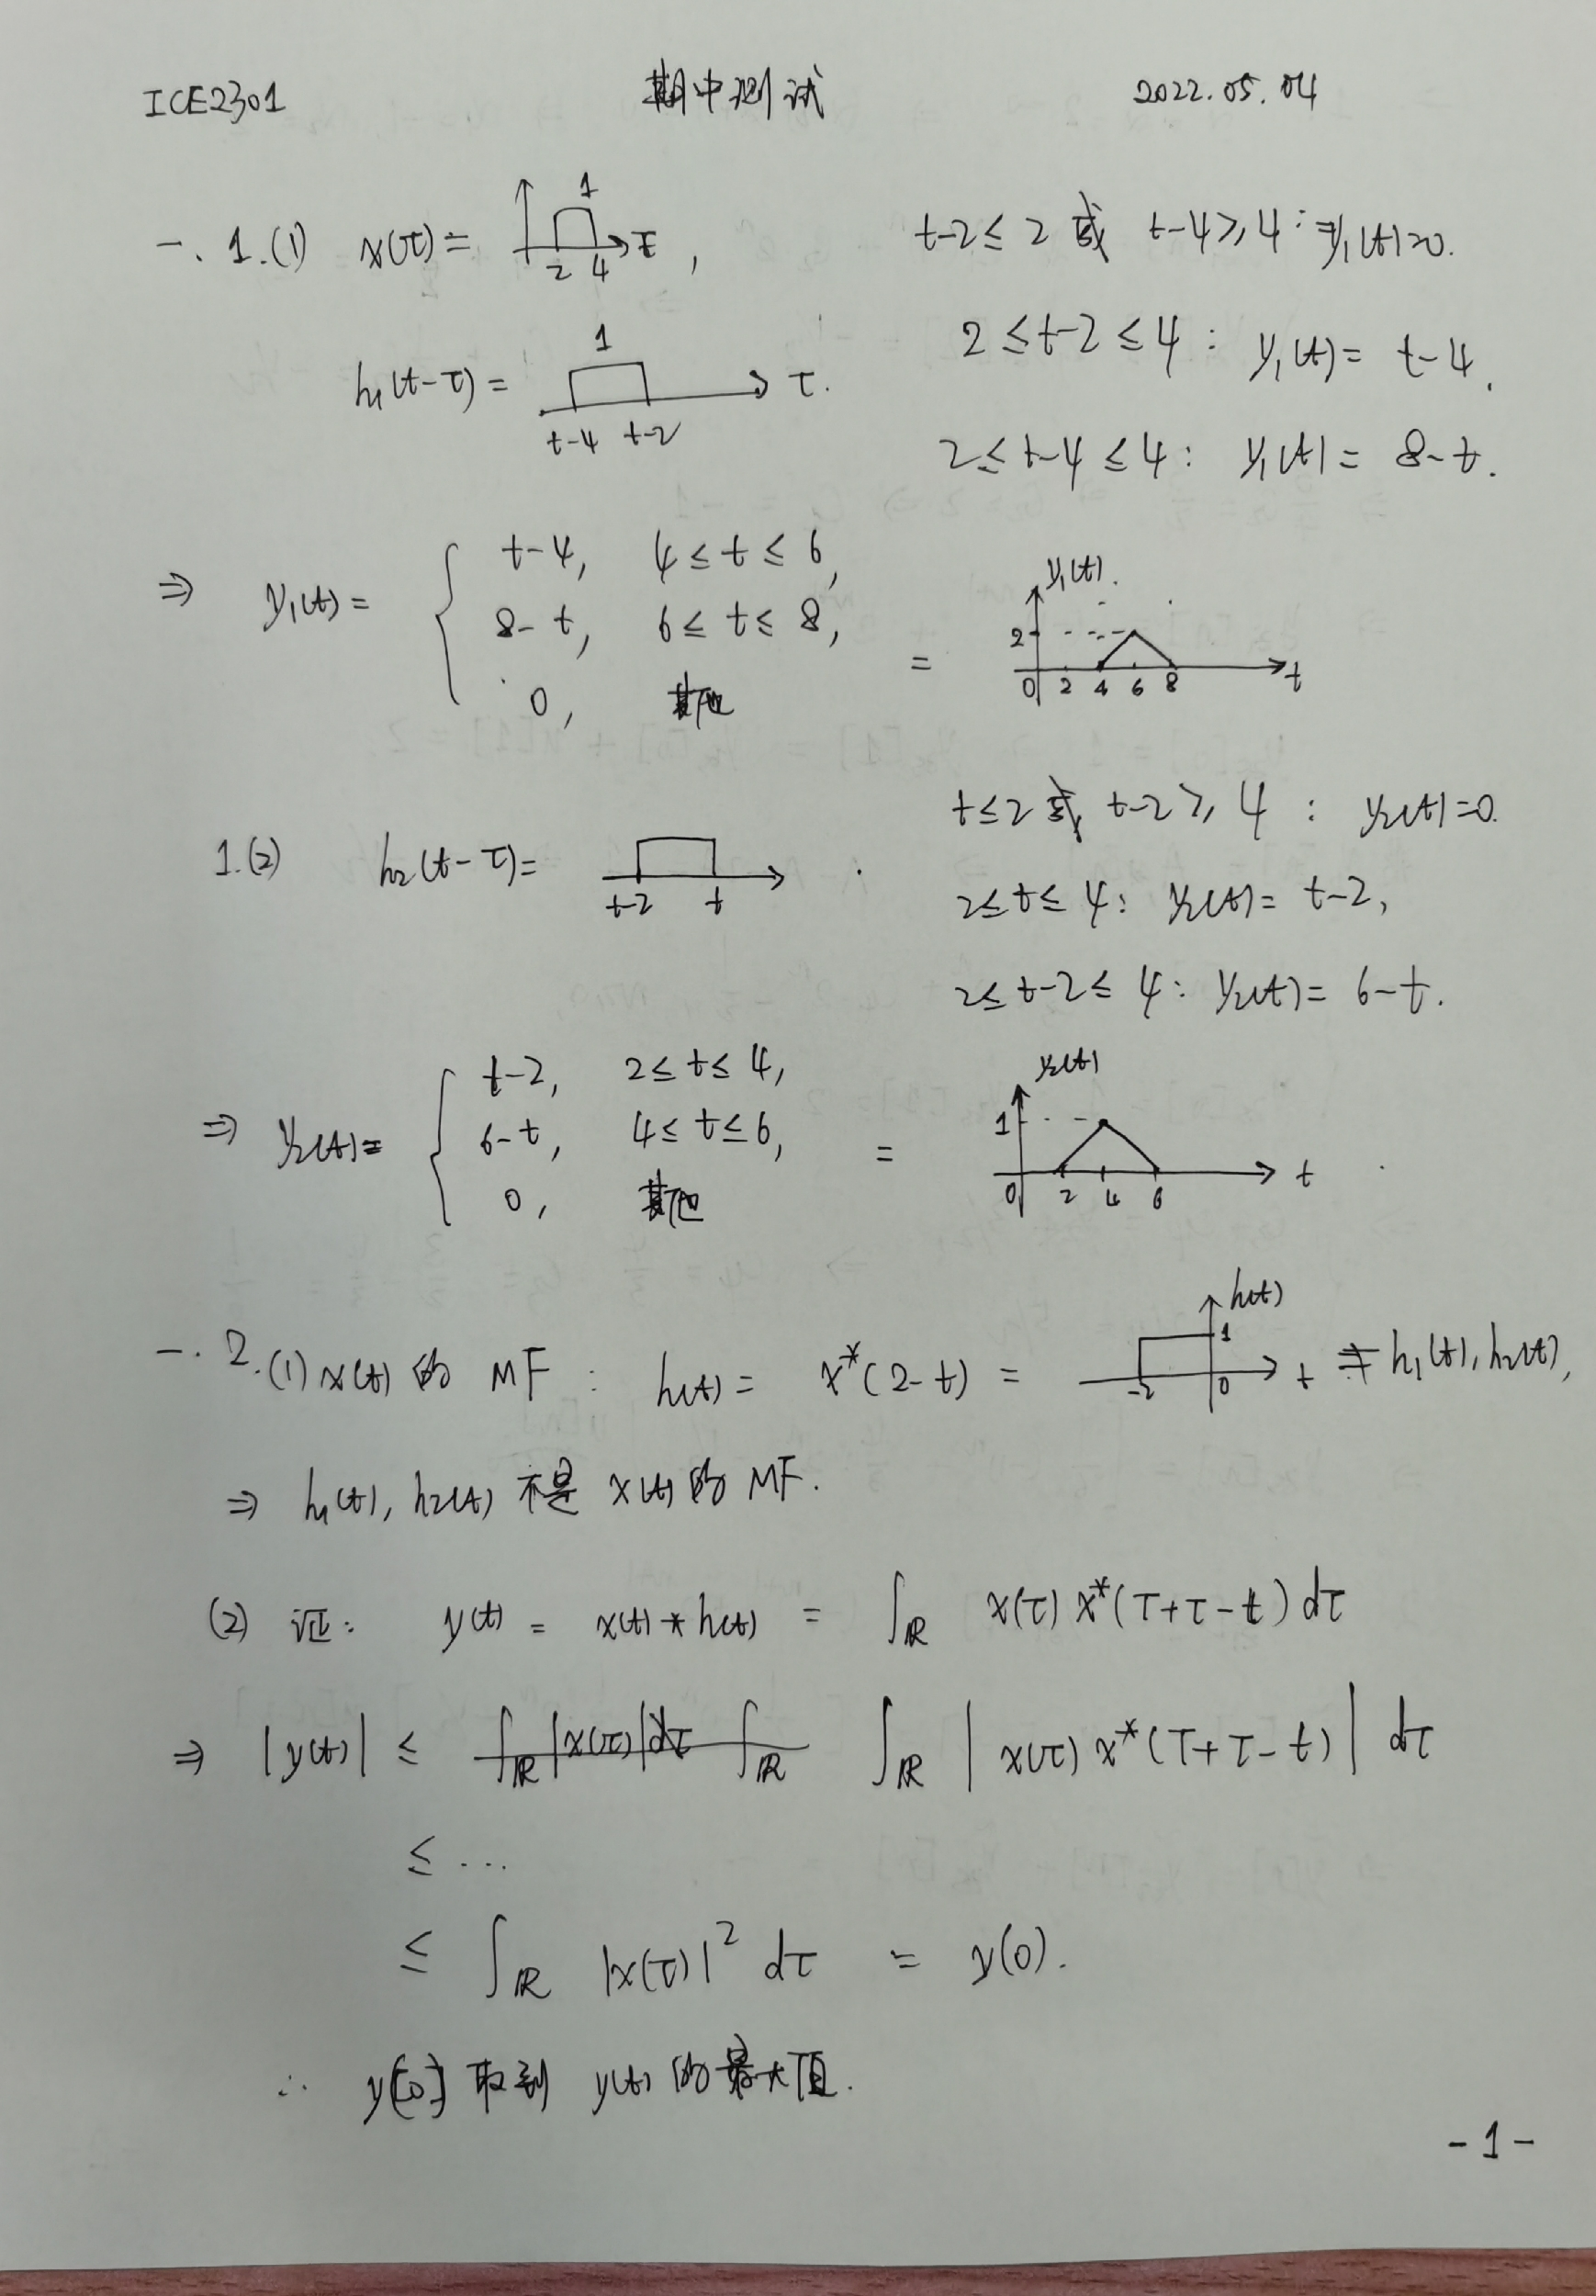 ICE2301 期中测试 2022.05.04
一. 1.(1) x(τ) = 1 2 4 τ , t-2≤2 或 t-4≥4 : y₁(t)=0.
h₁(t-τ) = 1 t-4 t-2 τ. 2≤t-2≤4 : y₁(t) = t-4.
2≤t-4≤4 : y₁(t) = 8-t.
⇒ y₁(t) = { t-4, 4≤t≤6,
8-t, 6≤t≤8,
0, 其他
= y₁(t). 2 0 2 4 6 8 t
1.(2) h₂(t-τ) = t-2 t . t≤2 或 t-2≥4 : y₂(t)=0.
2≤t≤4 : y₂(t) = t-2,
2≤t-2≤4 : y₂(t) = 6-t.
⇒ y₂(t) = { t-2, 2≤t≤4,
6-t, 4≤t≤6,
0, 其他
= y₂(t) 1 0 2 4 6 t .
一. 2.(1) x(t) 的 MF : h(t) = x*(2-t) = h(t) 1 -2 0 t ≠ h₁(t), h₂(t),
⇒ h₁(t), h₂(t) 不是 x(t) 的 MF.
(2) 证: y(t) = x(t) * h(t) = ∫ℝ x(τ) x*(T+τ-t) dτ
⇒ |y(t)| ≤ ∫ℝ |x(τ)|dτ ∫ℝ ∫ℝ | x(τ) x*(T+τ-t) | dτ
≤ ...
≤ ∫ℝ |x(τ)|² dτ = y(0).
∴ y[0] 取到 y(t) 的最大值.
- 1 -